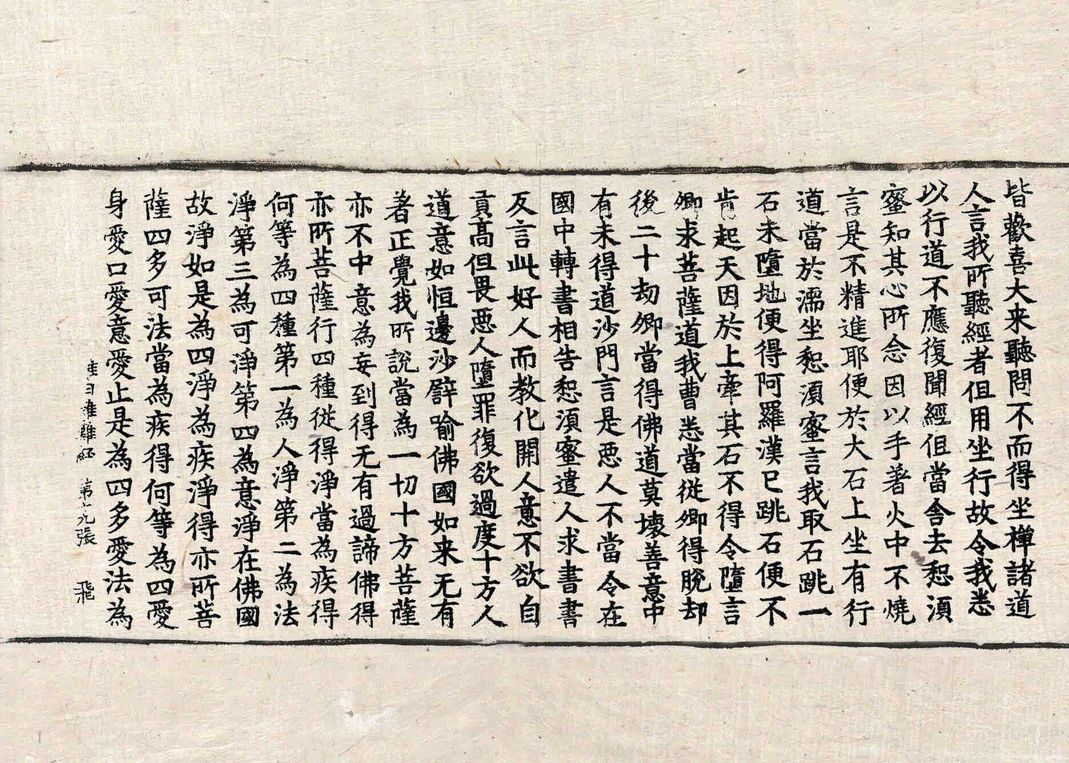 皆歡喜大来聽問不而得坐禅諸道
人言我所聽經者但用坐行故令我悉
以行道不應復聞經但當舍去恕湏
蜜知其心所念因以手著火中不燒
言是不精進耶便於大石上坐有行
道當於濡坐恕湏蜜言我取石跳一
石未墮地便得阿羅漢已跳石便不
肯起天因於上牽其石不得令墮言
卿求菩薩道我曹悉當從卿得脫却
後二十劫卿當得佛道莫壞善意中
有未得道沙門言是惡人不當令在
國中轉書相告恕湏蜜遣人求書書
反言此好人而教化開人意不欲自
貢高但畏惡人墮罪復欲過度十方人
道意如恒邊沙譬喻佛國如来无有
著正覺我所說當為一切十方菩薩
亦不中意為妄到得无有過諦佛得
亦所菩薩行四種從得淨當為疾得
何等為四種第一為人淨第二為法
淨第三為可淨第四為意淨在佛國
故淨如是為四淨為疾淨得亦所菩
薩四多可法當為疾得何等為四愛
身愛口愛意愛止是為四多愛法為
惟曰雜難經 第十九張 飛